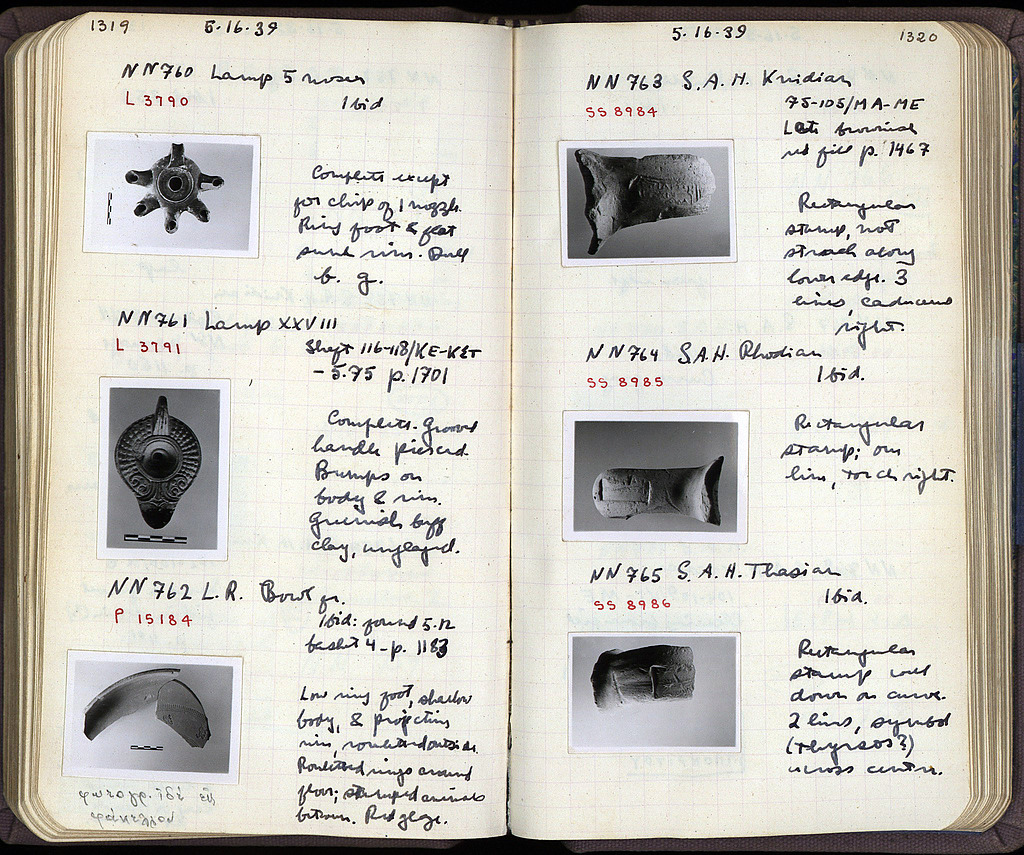 1319 5·16·39
NN760 Lamp 5 noses
L 3790 Ibid
Complete except
for chip of 1 nozzle.
Ring foot & flat
sunk rim. Dull
b. g.
NN761 Lamp XXVIII
L 3791 Shaft 116-118/KE-KST
- 5.75 p. 1701
Complete. Grooved
handle pierced.
Bumps on
body & rim.
Greenish buff
clay, unglazed.
NN762 L.R. Bowl fr.
P 15184 Ibid: found 5.12
basket 4 - p. 1183
Low ring foot, shallow
body, & projecting
rim, rouletted outside.
Rouletted rings around
floor; stamped animals
between. Red glaze.
φωτογρ. ἰδὲ εἰς
φάκελλον
5·16·39 1320
NN763 S.A.H. Knidian
SS 8984 75-105/MA-ME
Late brownish
red fill p. 1467
Rectangular
stamp, not
struck along
lower edge. 3
lines, caduceus
right.
NN764 S.A.H. Rhodian
SS 8985 Ibid.
Rectangular
stamp; one
line, torch right.
NN765 S.A.H. Thasian
SS 8986 Ibid.
Rectangular
stamp well
down on curve.
2 lines, symbol
(thyrsos?)
across center.